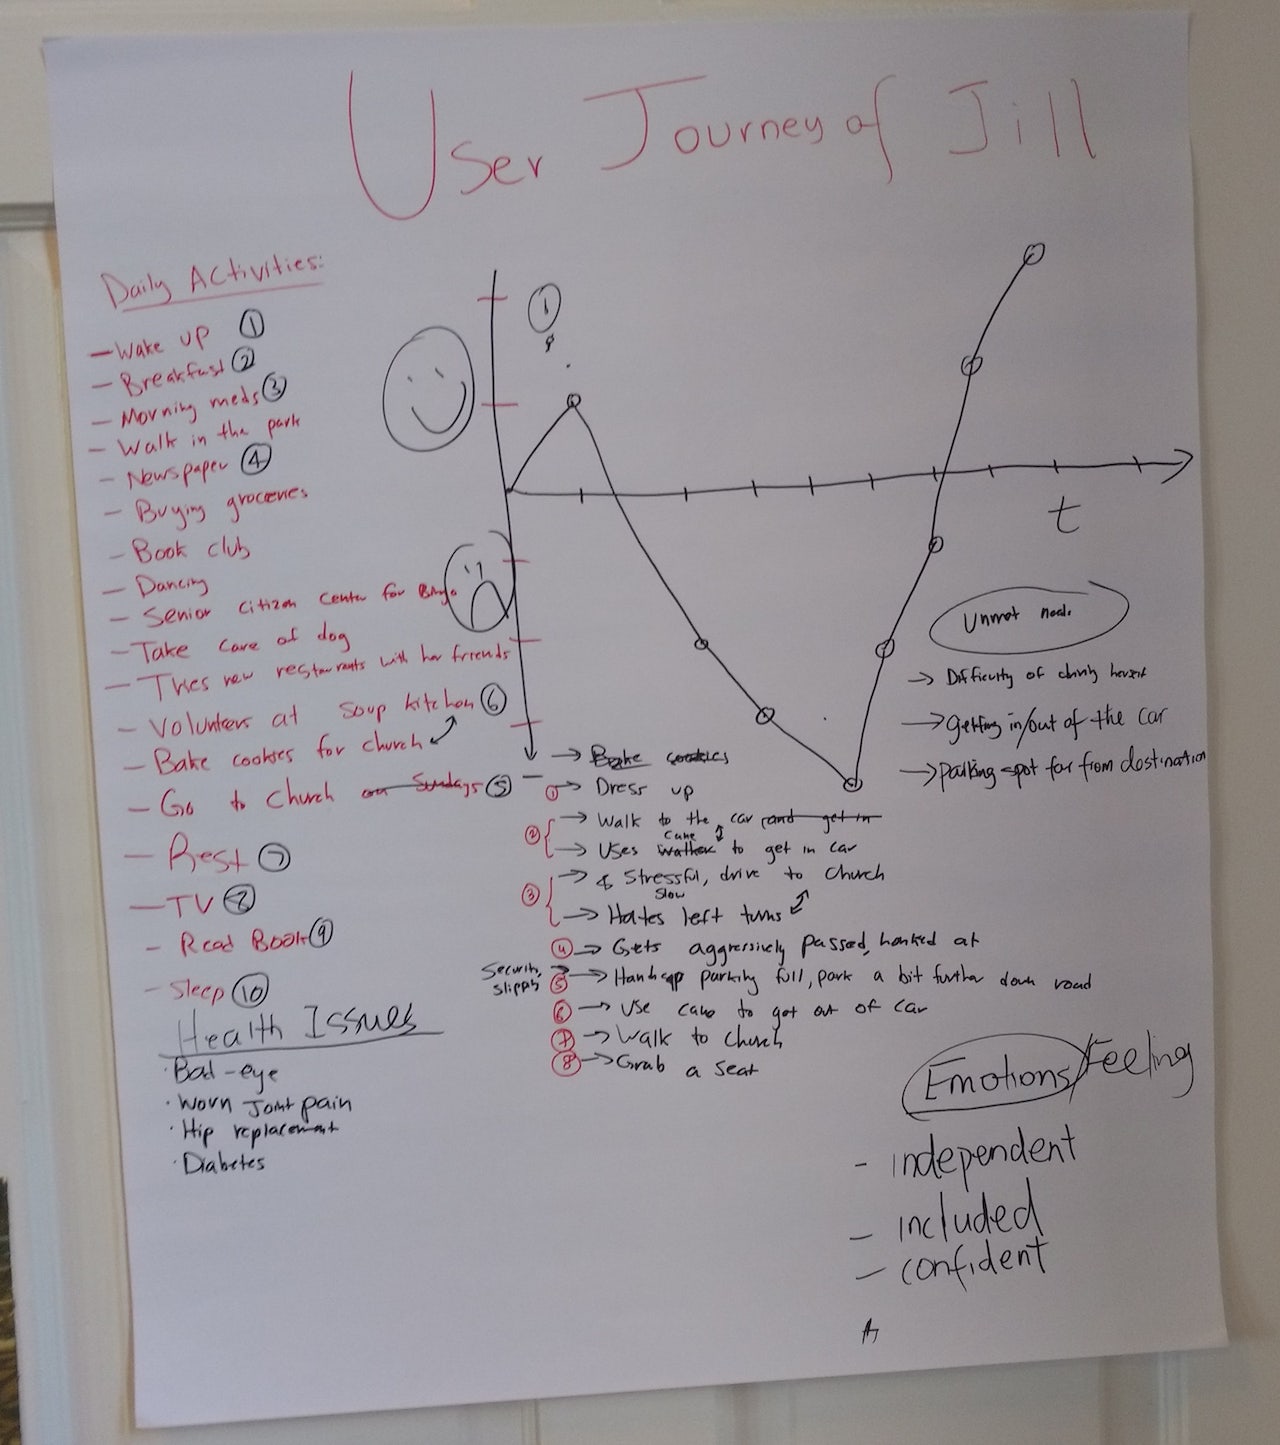 User Journey of Jill
Daily Activities:
— Wake up ①
— Breakfast ②
— Morning meds ③
— Walk in the park
— Newspaper ④
— Buying groceries
— Book club
— Dancing
— Senior Citizen Center for Bingo
— Take care of dog
— Tries new restaurants with her friends
— Volunteers at soup kitchen ⑥
— Bake cookies for church
— Go to Church on Sundays ⑤
— Rest ⑦
— TV ⑧
- Read Book ⑨
- Sleep ⑩
Health Issues
· Bad-eye
· Worn Joint pain
· Hip replacement
· Diabetes
①
t
→ Bake cookies
① → Dress up
② → Walk to the car (and get in
cane
→ Uses walker to get in car
③ → Stressful, drive to church
slow
→ Hates left turns
④ → Gets aggressively passed, honked at
Security,
slippy
⑤ → Handicap parking full, park a bit further down road
⑥ → Use cane to get out of car
⑦ → Walk to church
⑧ → Grab a seat
Unmet needs
→ Difficulty of
→ Getting in/out of the car
→ parking spot far from destination
Emotions/Feeling
- independent
- included
- confident